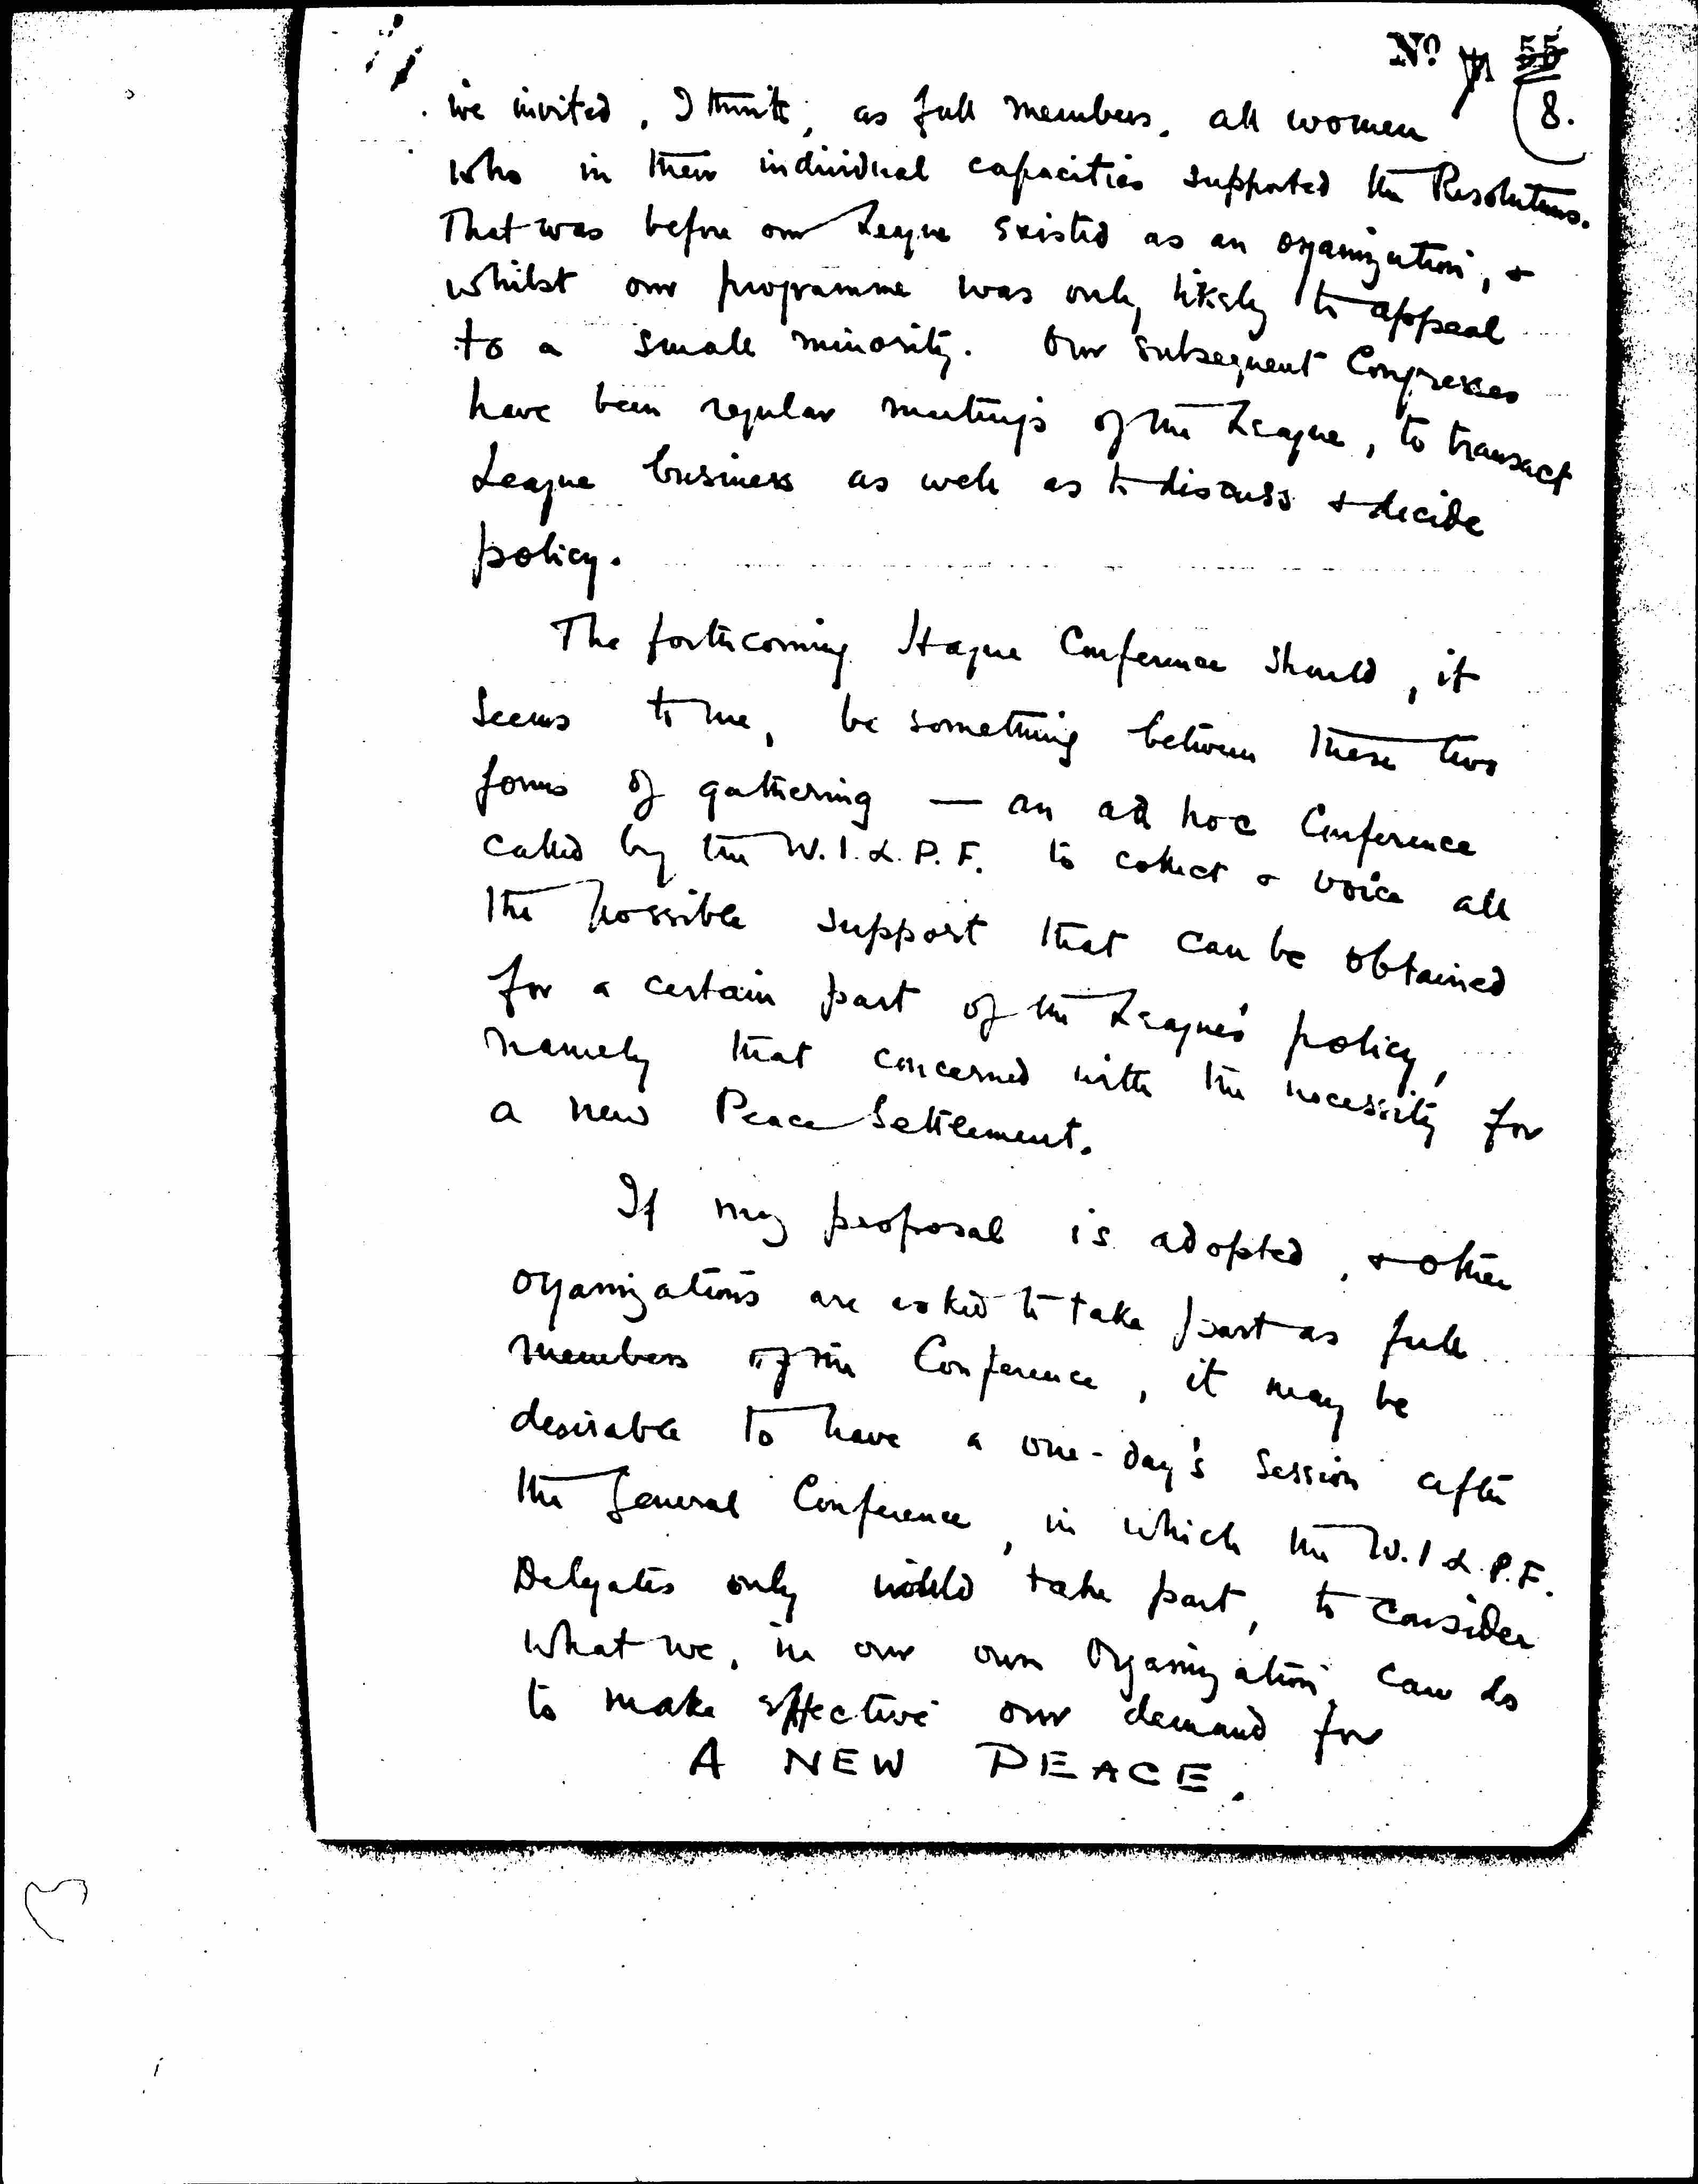 No. 55
8.
we invited, I think, as full members, all women
who in their individual capacities supported the Resolutions.
That was before our League existed as an organization, &
whilst our programme was only likely to appeal
to a small minority. Our subsequent Congresses
have been regular meetings of the League, to transact
League business as well as to discuss & decide
policy.
The forthcoming Hague Conference should, it
seems to me, be something between these two
forms of gathering — an ad hoc Conference
called by the W.I.L.P.F. to collect & voice all
the possible support that can be obtained
for a certain part of the League's policy,
namely that concerned with the necessity for
a new Peace Settlement.
If my proposal is adopted, & other
organizations are asked to take part as full
members of the Conference, it may be
desirable to have a one-day's session after
the General Conference, in which the W.I.L.P.F.
Delegates only would take part, to consider
what we, in our own Organization, can do
to make effective our demand for
A NEW PEACE.